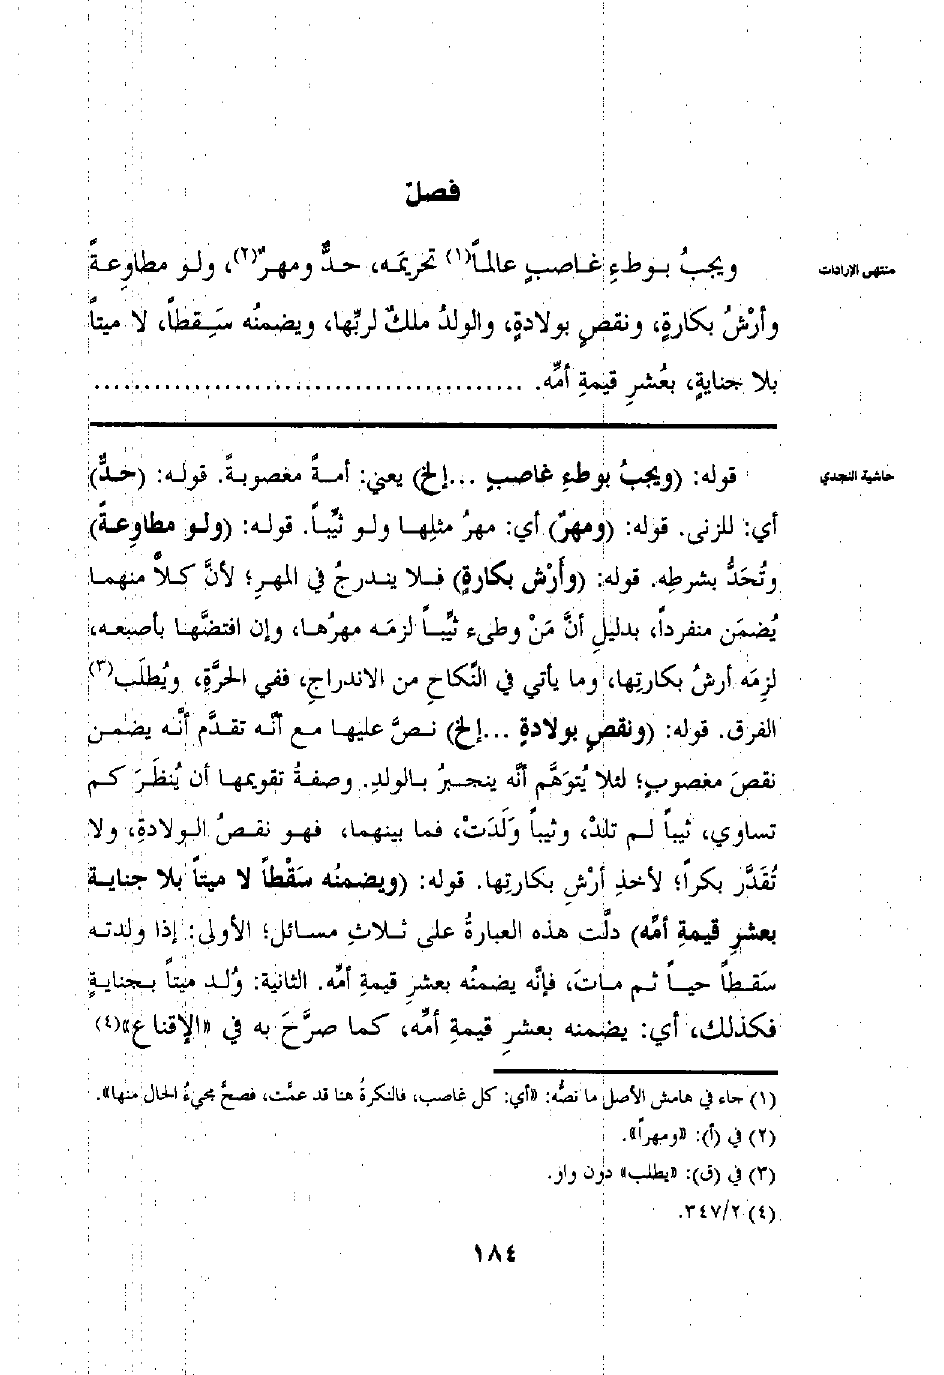 فصلٌ
منتهى الإرادات
ويجبُ بوطءِ غاصبٍ عالماً(١) تحريمَه، حدٌّ ومهرٌ(٢)، ولو مطاوِعةً
وأرْشُ بكارةٍ، ونقصٍ بولادةٍ، والولدُ ملكٌ لربِّها، ويضمنُه سَِقطاً، لا ميتاً
بلا جنايةٍ، بعُشرِ قيمةِ أمِّه. ............................................
حاشية النجدي
قوله: (ويجبُ بوطءِ غاصبٍ ...إلخ) يعني: أمةً مغصوبةً. قوله: (حدٌّ)
أي: للزنى. قوله: (ومهرٌ) أي: مهرُ مثلِها ولو ثيِّباً. قوله: (ولو مطاوِعةً)
وتُحَدُّ بشرطِه. قوله: (وأَرْش بكارةٍ) فلا يندرجُ في المهرِ؛ لأنَّ كلاًّ منهما
يُضمَن منفرداً، بدليلِ أنَّ مَنْ وطىء ثيِّباً لزمَه مهرُها، وإن افتضَّها بأصبعه،
لزِمَه أرشُ بكارتِها، وما يأتي في النِّكاحِ من الاندراجِ، ففي الحرَّةِ، ويُطلَب(٣)
الفرق. قوله: (ونقصٍ بولادةٍ ...إلخ) نصَّ عليها مع أنَّه تقدَّم أنَّه يضمن
نقصَ مغصوبٍ؛ لئلا يُتوَهَّم أنَّه ينجبرُ بالولدِ. وصفةُ تقويمها أن يُنظَرَ كم
تساوي، ثيباً لم تلدْ، وثيباً وَلَدَتْ، فما بينهما، فهو نقصُ الولادةِ، ولا
تُقَدَّر بكراً؛ لأخذِ أرْشِ بكارتِها. قوله: (ويضمنُه سَقْطاً لا ميتاً بلا جناية
بعشرِ قيمةِ أمِّه) دلَّت هذه العبارةُ على ثلاثِ مسائل؛ الأولى: إذا ولدته
سَقطاً حياً ثم ماتَ، فإنَّه يضمنُه بعشرِ قيمةِ أمِّه. الثانية: وُلد ميتاً بجنايةٍ
فكذلك، أي: يضمنه بعشرِ قيمةِ أمِّه، كما صرَّحَ به في «الإقناع»(٤)
(١) جاء في هامش الأصل ما نصُّه: «أي: كل غاصب، فالنكرةُ هنا قد عمَّت، فصحَّ مجيءُ الحال منها».
(٢) في (أ): «ومهراً».
(٣) في (ق): «يطلب» دون واو.
(٤) ٣٤٧/٢.
١٨٤